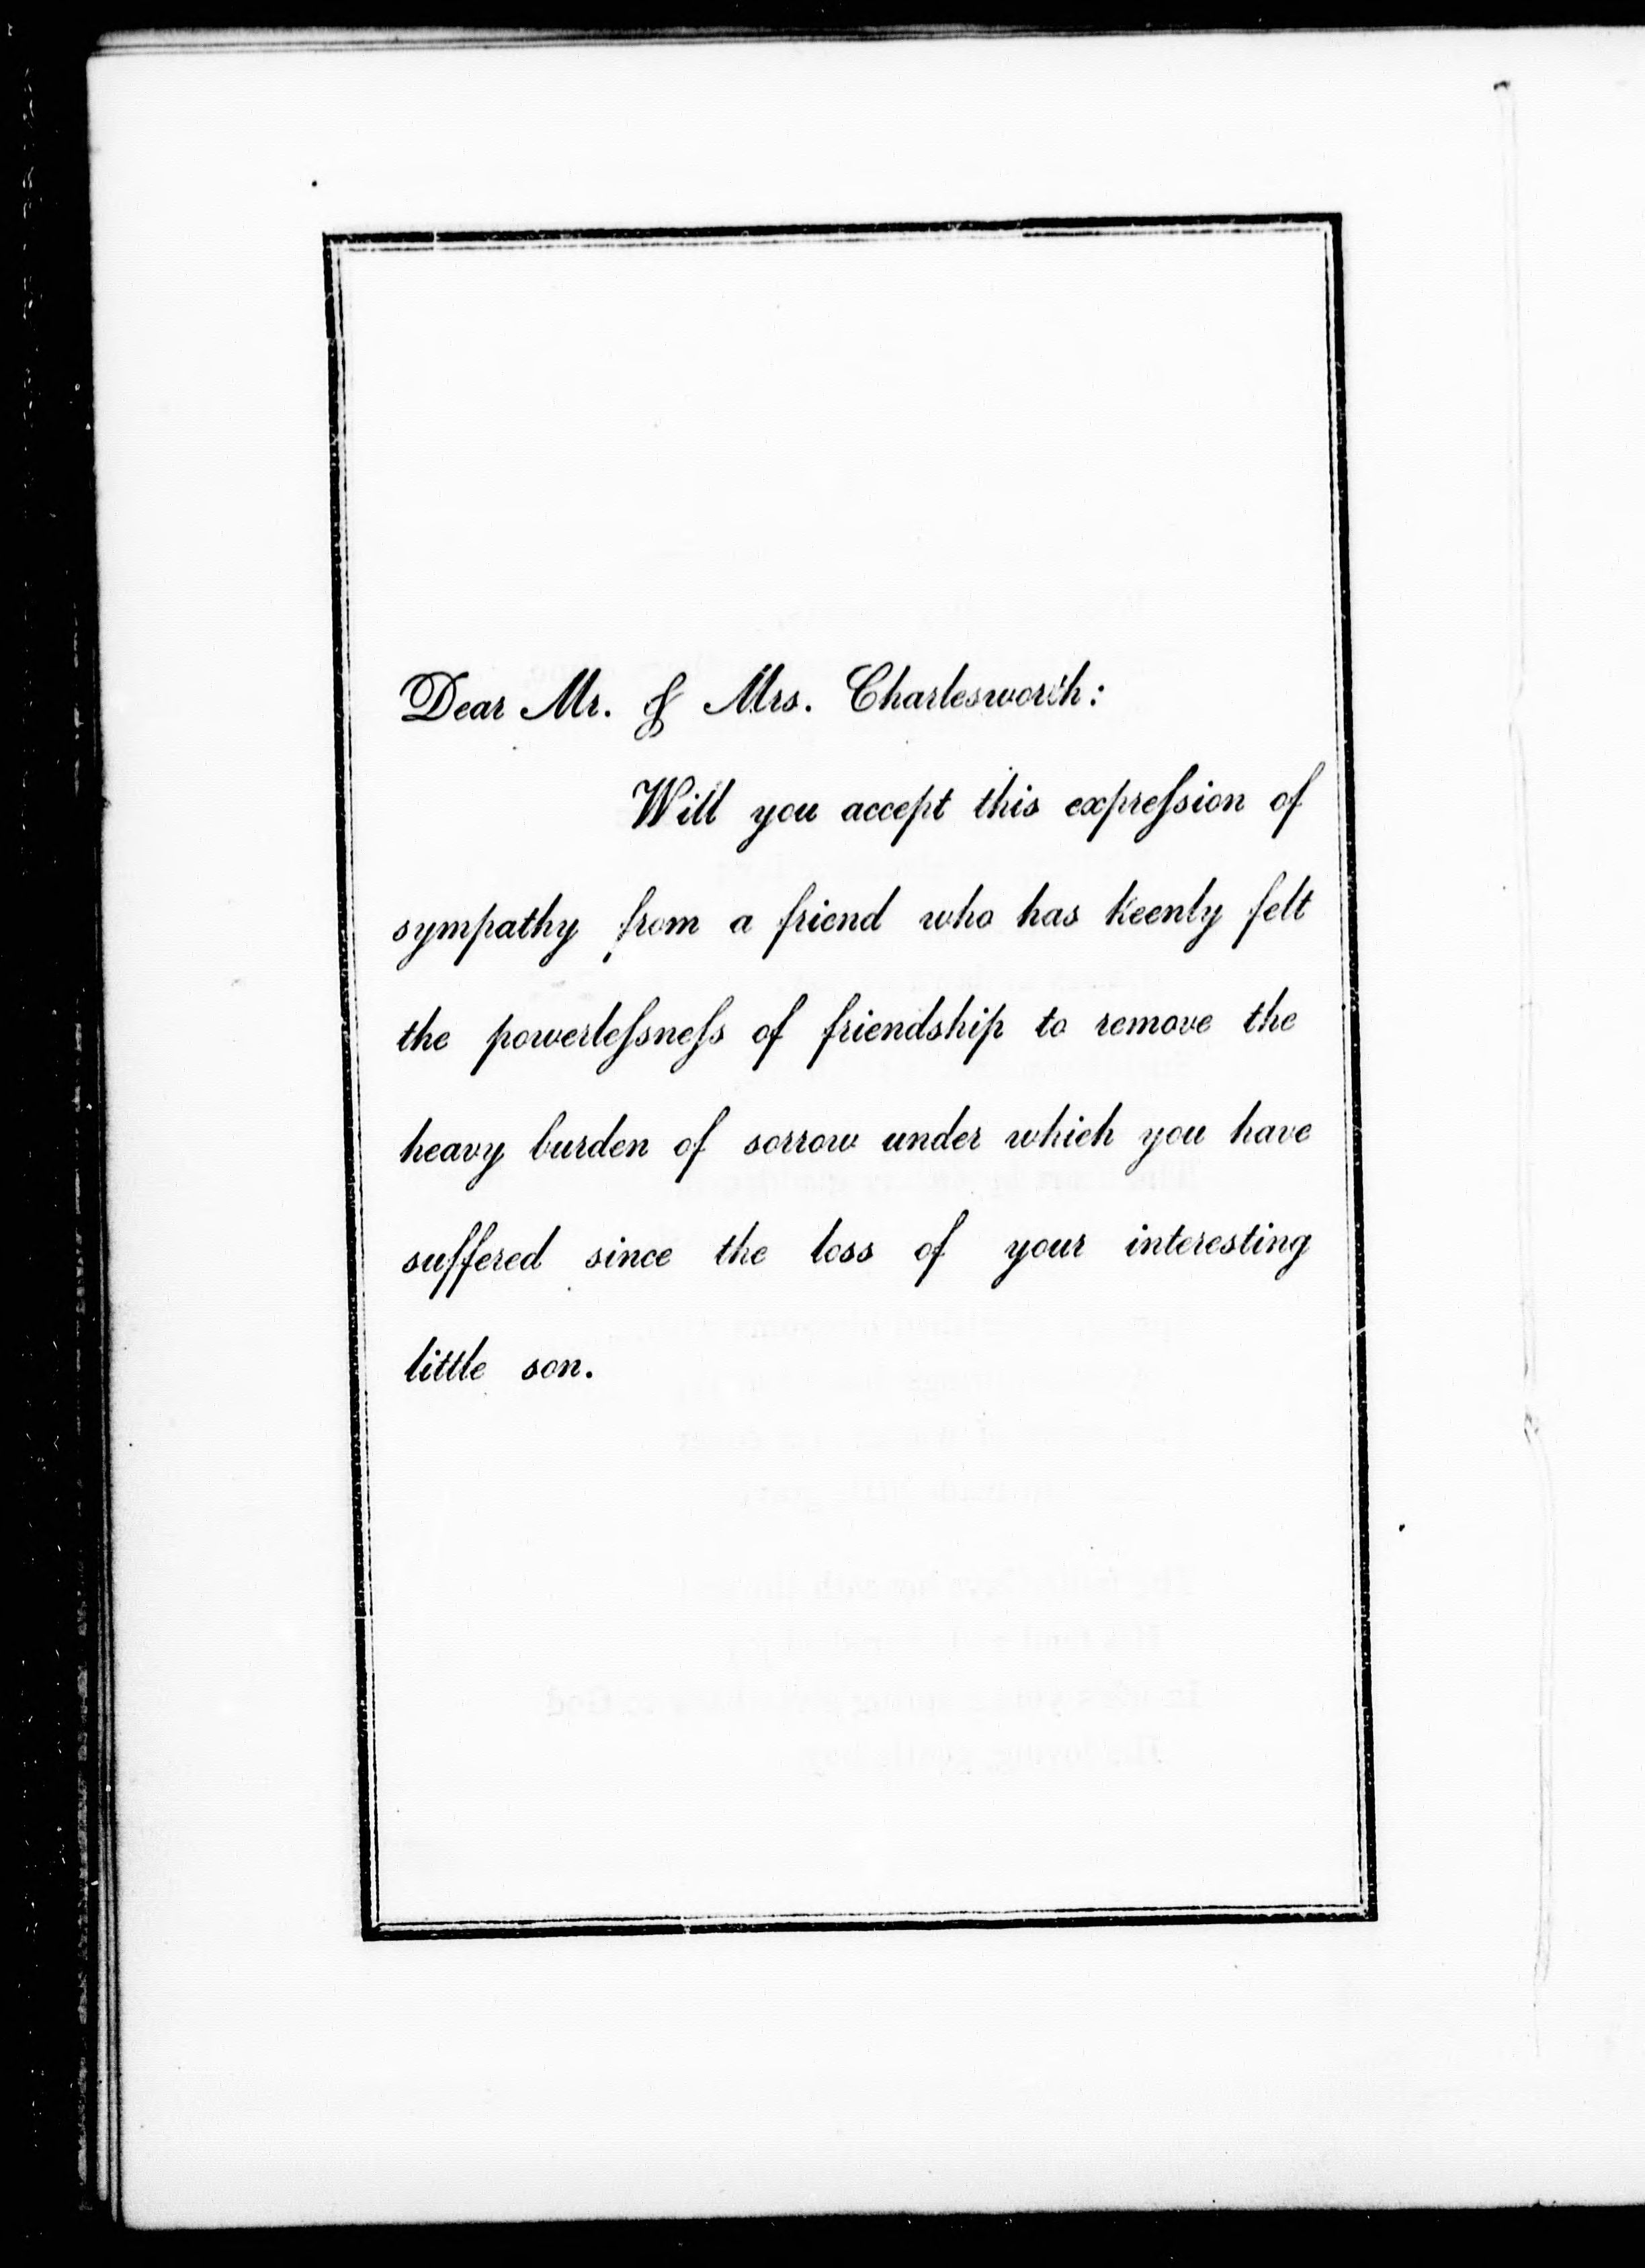 Dear Mr. & Mrs. Charlesworth:
Will you accept this expreſsion of
sympathy from a friend who has keenly felt
the powerleſsneſs of friendship to remove the
heavy burden of sorrow under which you have
suffered since the loss of your interesting
little son.